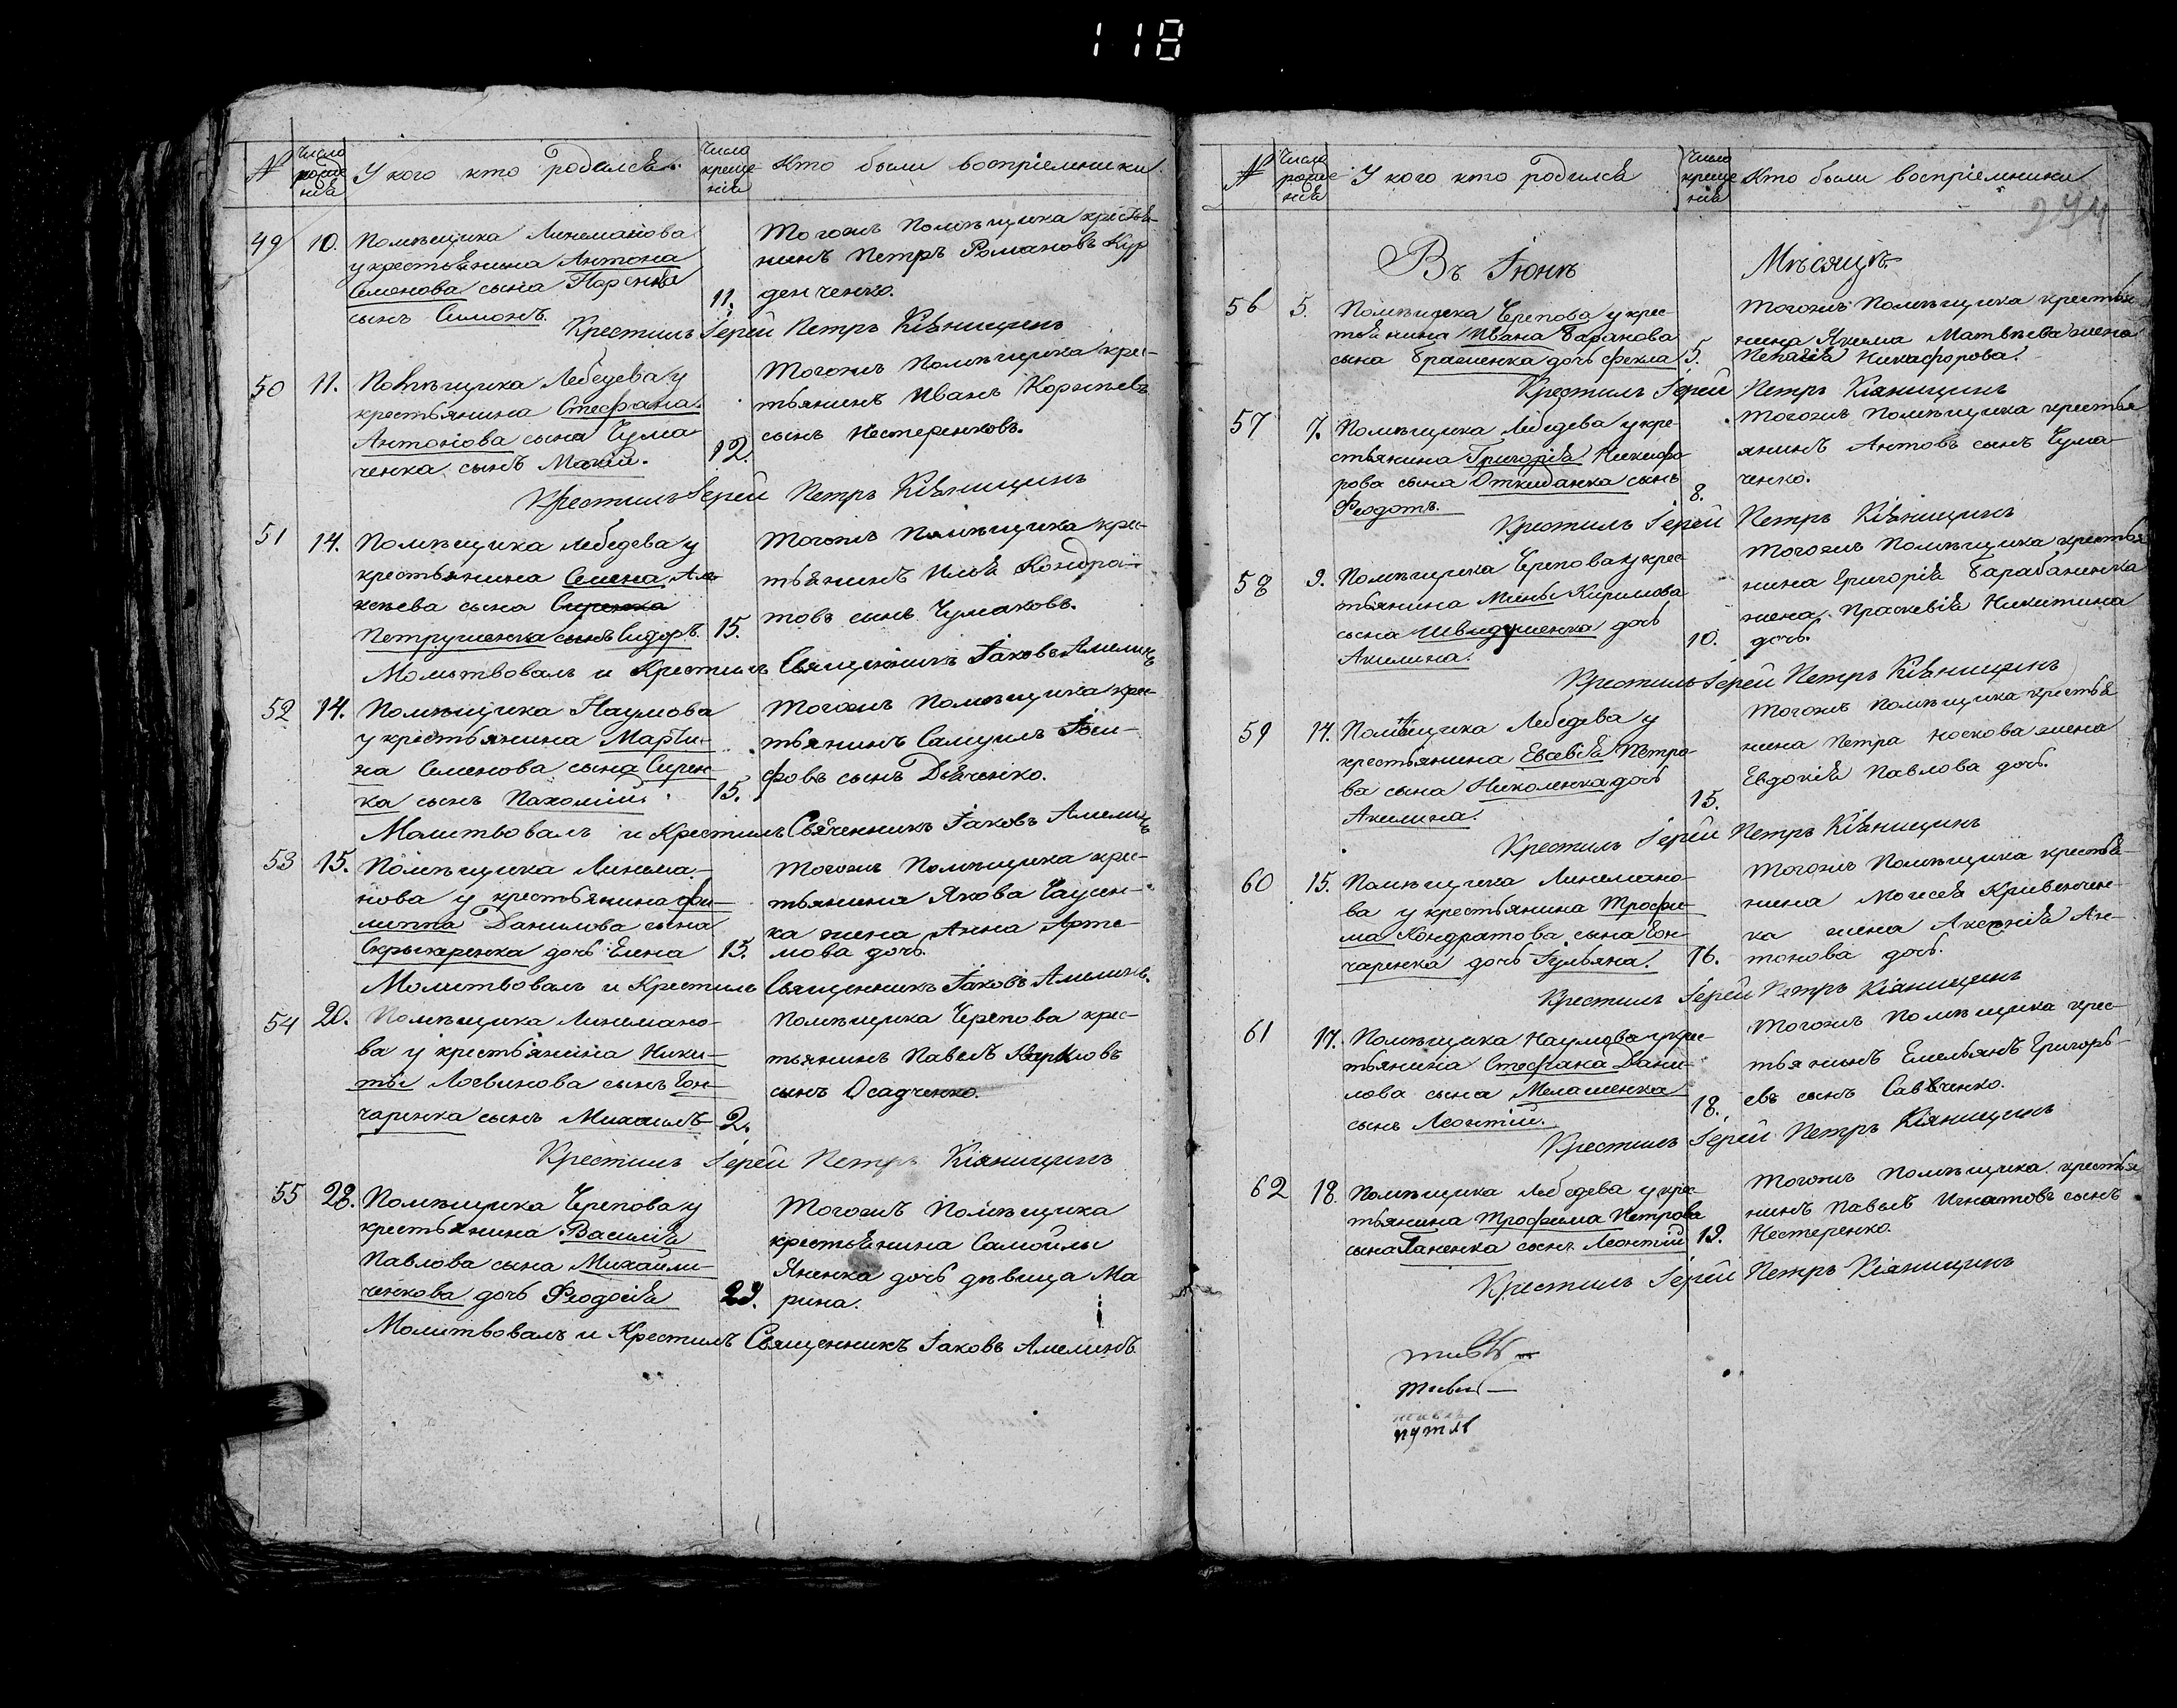 118
№ Число рожде нія У кого кто родился Число креще нія Кто были воспріемники
49 10. Помѣщика Линеманова
у крестьянина Антона
Семенова сына
сынъ Симонъ. 11.
Тогожъ Помѣщика крестья-
нинъ Петръ Романовъ Кур
денченко.
Крестилъ Іерей Петръ Кіяницинъ
50 11. Помѣщика Лебедева у
крестьянина Стефана
Антонова сына Чума-
ченка сынъ 12.
Тогожъ Помѣщика крес-
тьянинъ Иванъ Корнѣевъ
сынъ Нестеренковъ.
Крестилъ Іерей Петръ Кіяницинъ
51 14. Помѣщика Лебедева у
крестьянина Семена Але-
ксѣева сына Сиренка
Петрушенка сынъ Сидоръ. 15.
Тогожъ Помѣщика крес-
тьянинъ Илья Кондра-
товъ сынъ Чумаковъ.
Молитвовалъ и Крестилъ Священникъ Іаковъ Амелинъ
52 14. Помѣщика Наумова
у крестьянина Марти-
на Семенова сына Сирен-
ка сынъ Пахомій. 15.
Тогожъ Помѣщика крес-
тьянинъ Самуилъ Іоси-
фовъ сынъ Дяченко.
Молитвовалъ и Крестилъ Свяченникъ Іаковъ Амелинъ
53 15. Помѣщика Линема-
нова у крестьянина Фи-
липпа Данилова сына
дочь Елена 15.
Тогожъ Помѣщика крес-
тьянина Якова
ка жена Анна Арте-
мова дочь.
Молитвовалъ и Крестилъ Священникъ Іаковъ Амелинъ.
54 20. Помѣщика Линемано-
ва у крестьянина Ники-
ты Логвинова сынъ Гон-
чаренка сынъ Михаилъ 2.
Помѣщика Черепова крес-
тьянинъ Павелъ Карповъ
сынъ Осадченко.
Крестилъ Іерей Петръ Кіяницинъ
55 28. Помѣщика Черепова у
крестьянина Василія
Павлова сына Михайли-
ченкова дочь Феодосія 29.
Тогожъ Помѣщика
крестьянина Самойлы
Яненка дочь дѣвица Ма
рина.
Молитвовалъ и Крестилъ Священникъ Іаковъ Амелинъ
№ Число рожде нія У кого кто родился Число креще нія Кто были воспріемники
Въ Іюнѣ Мѣсяцѣ
56 5. Помѣщика Черепова у крес-
тьянина Ивана Баранова
сына дочь Фекла 5.
Тогожъ Помѣщика крестья
нина Якима Матвѣева жена
Пелагія Никифорова.
Крестилъ Іерей Петръ Кіяницинъ
57 7. Помѣщика Лебедева у кре-
стьянина Григорія Никифо
рова сына Откиданка сынъ
Феодотъ. 8.
Тогожъ Помѣщика крестья
янинъ Антовъ сынъ Чума-
ченко.
Крестилъ Іерей Петръ Кіяницинъ
58 9. Помѣщика Черепова у крес-
тьянина Мины Кирилова
сына Швидушенка дочь
Акилина. 10.
Тогожъ Помѣщика крестья
нина Григорія Барабаненка
жена Праскевія Никитина
дочь.
Крестилъ Іерей Петръ Кіяницинъ
59 14. Помѣщика Лебедева у
крестьянина Евсевія Петро-
ва сына Николенка дочь
Акилина. 15.
Тогожъ Помѣщика крестья
нина Петра Носкова жена
Евдокія Павлова дочь.
Крестилъ Іерей Петръ Кіяницинъ
60 15. Помѣщика Линемано-
ва у крестьянина Трофи-
ма Кондратова сына Гон-
чаренка дочь Іульяна. 16.
Тогожъ Помѣщика крестья-
нина Моисея Кривенчен-
ка жена Аксенія Ан-
тонова дочь.
Крестилъ Іерей Петръ Кіяницинъ
61 17. Помѣщика Наумова у крес-
тьянина Стефана Дани-
лова сына Мелашенка
сынъ Леонтій. 18.
Тогожъ Помѣщика крес-
тьянинъ Емельянъ Григорь-
евъ сынъ Савченко.
Крестилъ Іерей Петръ Кіяницинъ
62 18. Помѣщика Лебедева у крес-
тьянина Трофима Петрова
сына Ганенка сынъ Леонтій 19.
Тогожъ Помѣщика крестья
нинъ Павелъ Игнатовъ сынъ
Нестеренко.
Крестилъ Іерей Петръ Кіяницинъ